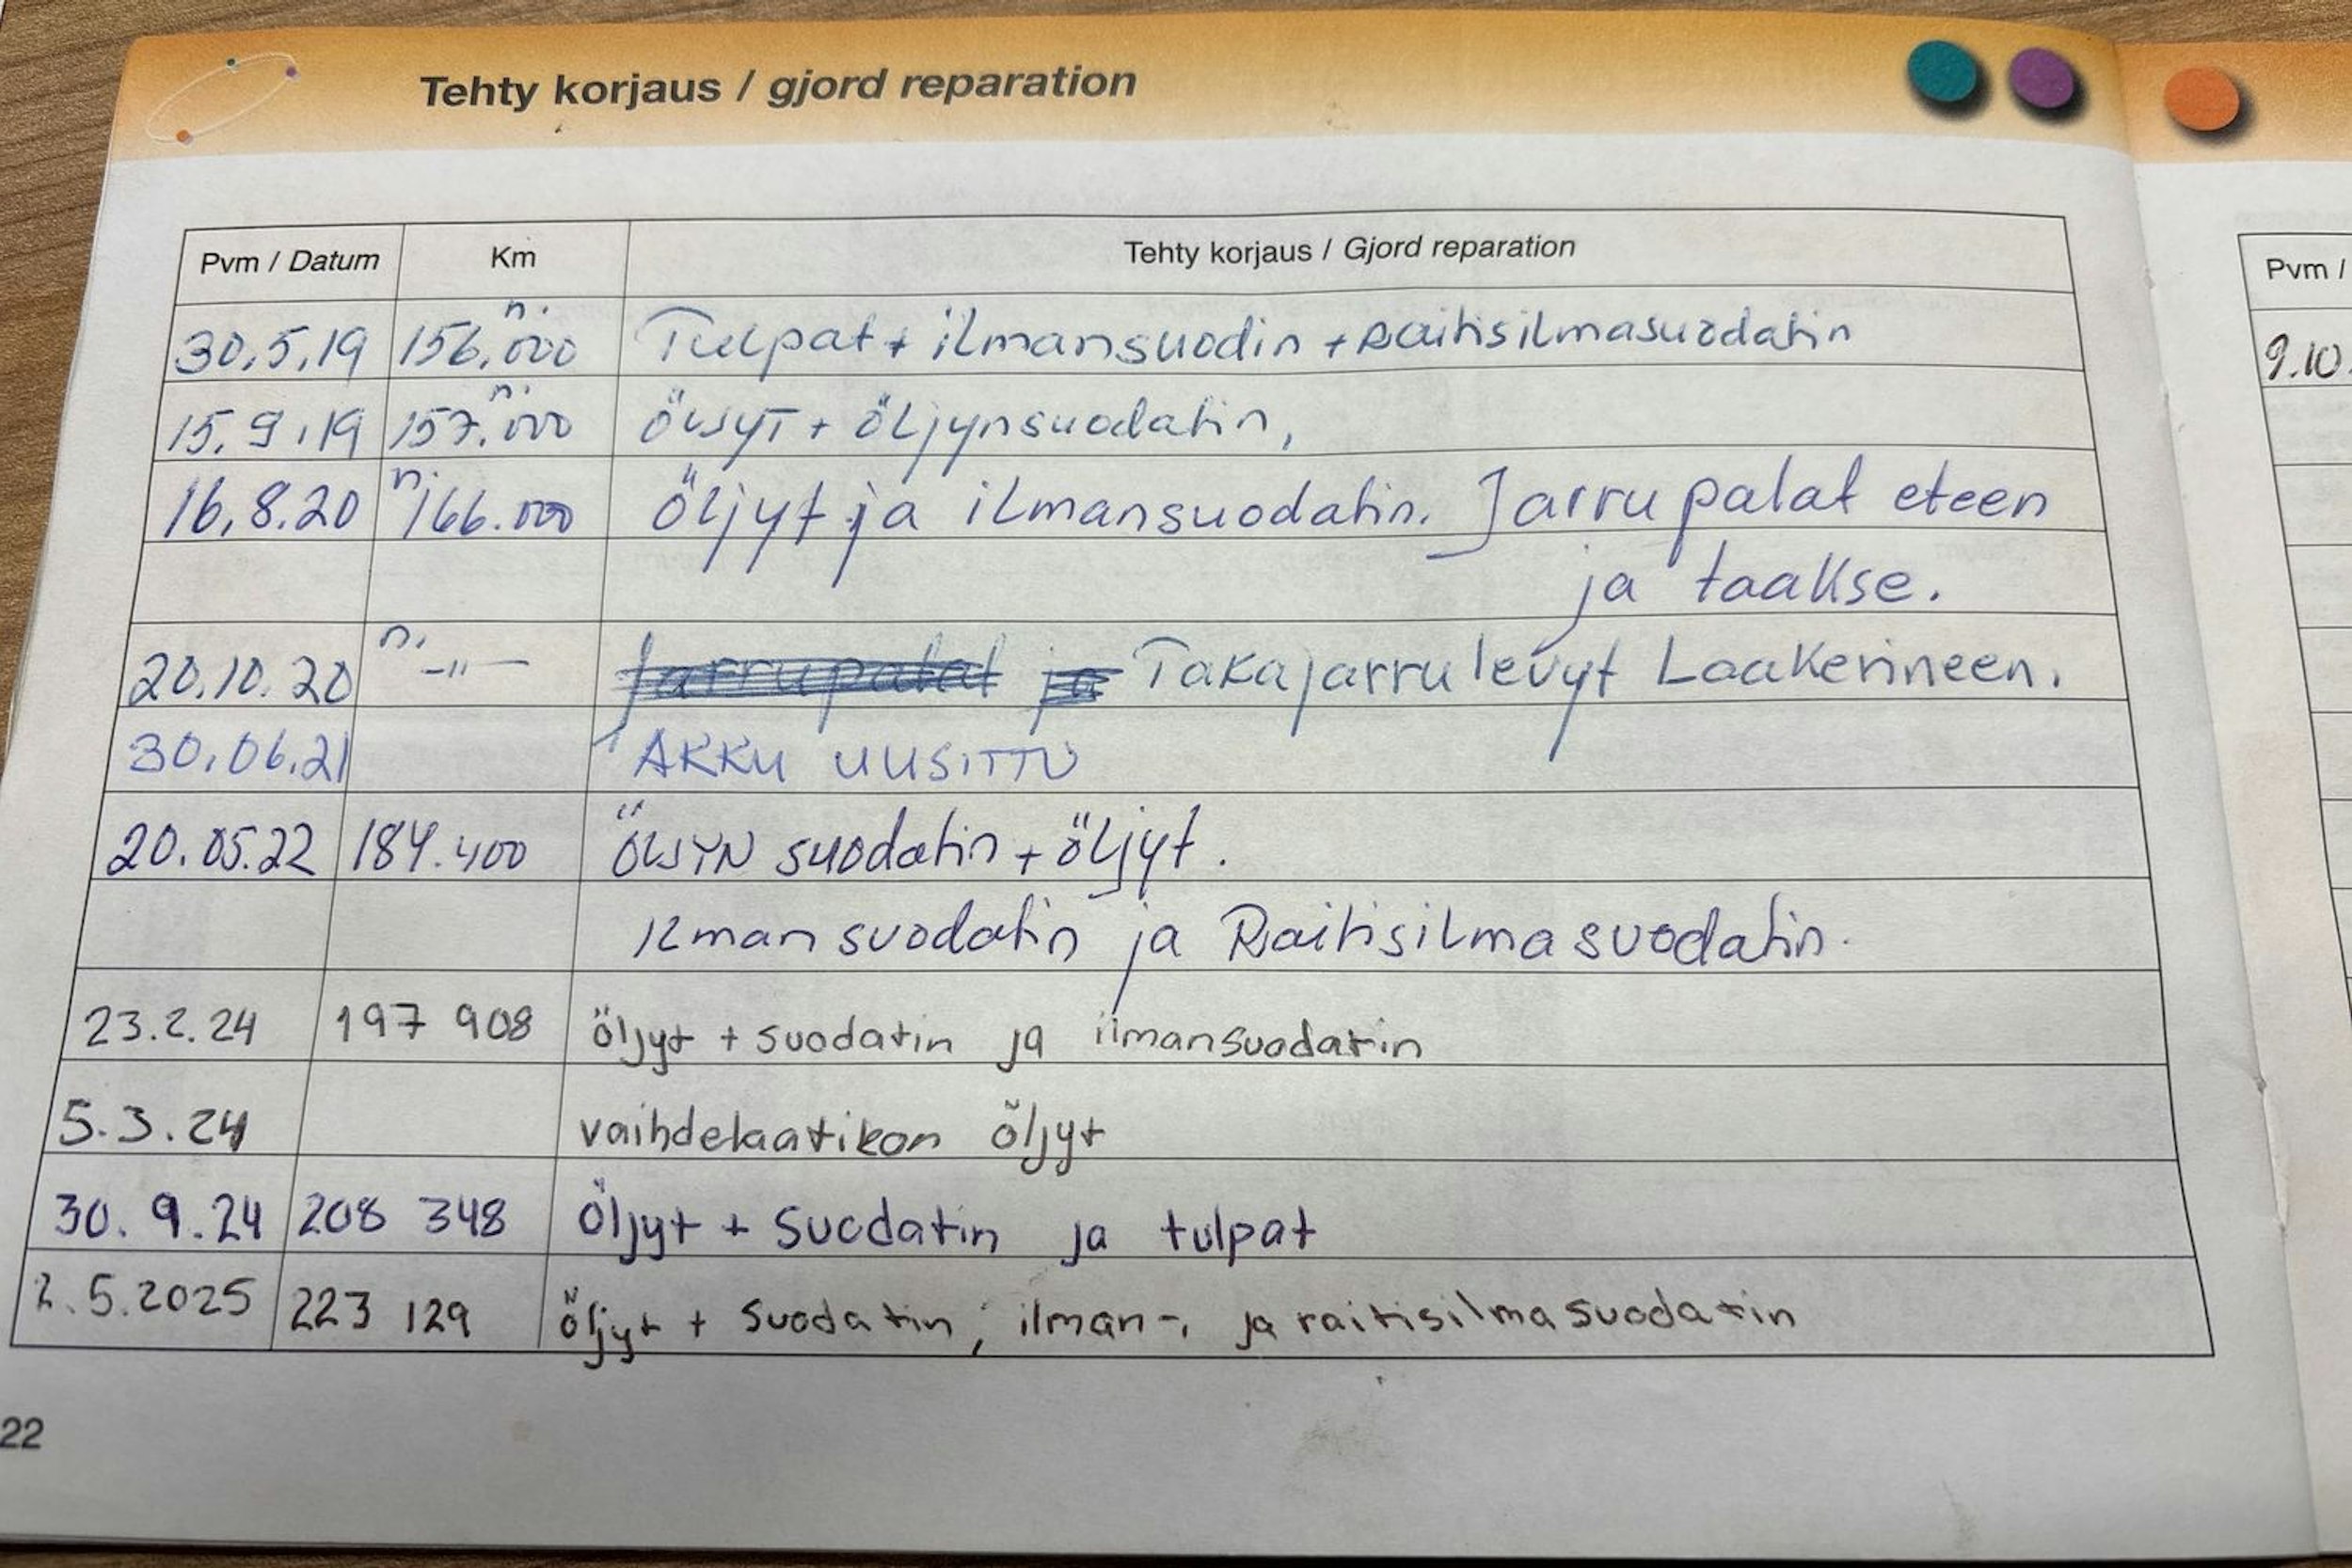 Tehty korjaus / gjord reparation
Pvm / Datum Km Tehty korjaus / Gjord reparation
30.5.19 n. 156.000 Tulpat + ilmansuodin + Raitisilmasuodatin
15.9.19 n. 157.000 ÖLJYT + ÖLjynsuodatin,
16.8.20 n. 166.000 Öljyt ja ilmansuodatin. Jarrupalat eteen
ja taakse.
20.10.20 n. -"- Jarrupalat ja Takajarrulevyt Laakerineen.
30.06.21 AKKU UUSITTU
20.05.22 184.400 ÖLJYN suodatin + öljyt.
Ilman suodatin ja Raitisilmasuodatin.
23.2.24 197 908 öljyt + suodatin ja ilmansuodatin
5.3.24 vaihdelaatikon öljyt
30.9.24 208 348 Öljyt + Suodatin ja tulpat
2.5.2025 223 129 öljyt + suodatin, ilman-, ja raitisilmasuodatin
22
Pvm /
9.10.